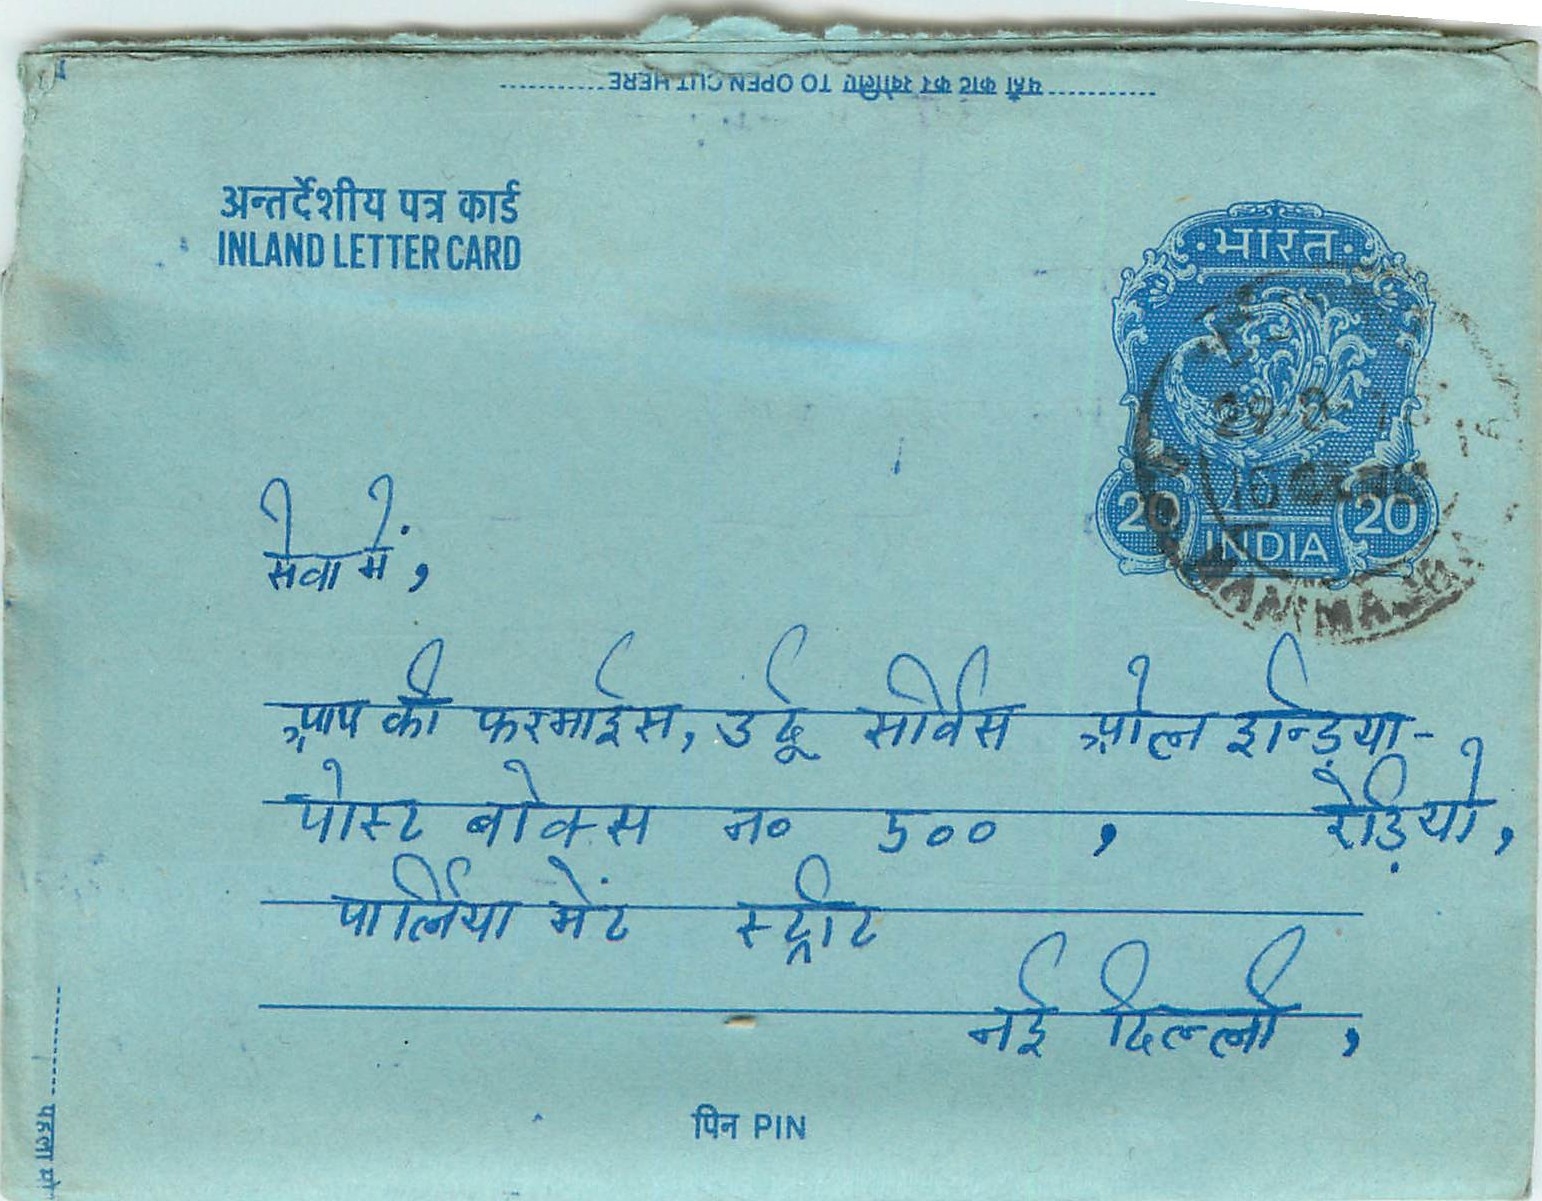 यहाँ काट कर खोलिए TO OPEN CUT HERE
अन्तर्देशीय पत्र कार्ड
INLAND LETTER CARD
भारत
20 20
INDIA
सेवा में,
आप की फरमाईस, उर्दू सर्विस ऑल इन्डिया-
पोस्ट बोक्स न० ५०० , रेडियो,
पार्लिया मेंट स्ट्रीट
नई दिल्ली ,
पिन PIN
पहला मो